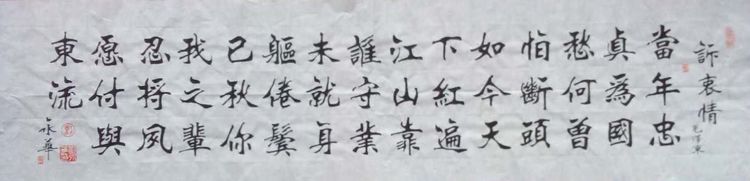 訴衷情
毛澤東
當年忠
貞為國
愁何曾
怕斷頭
如今天
下紅遍
江山靠
誰守業
未就身
軀倦鬢
已秋你
我之輩
忍將夙
愿付與
東流
華